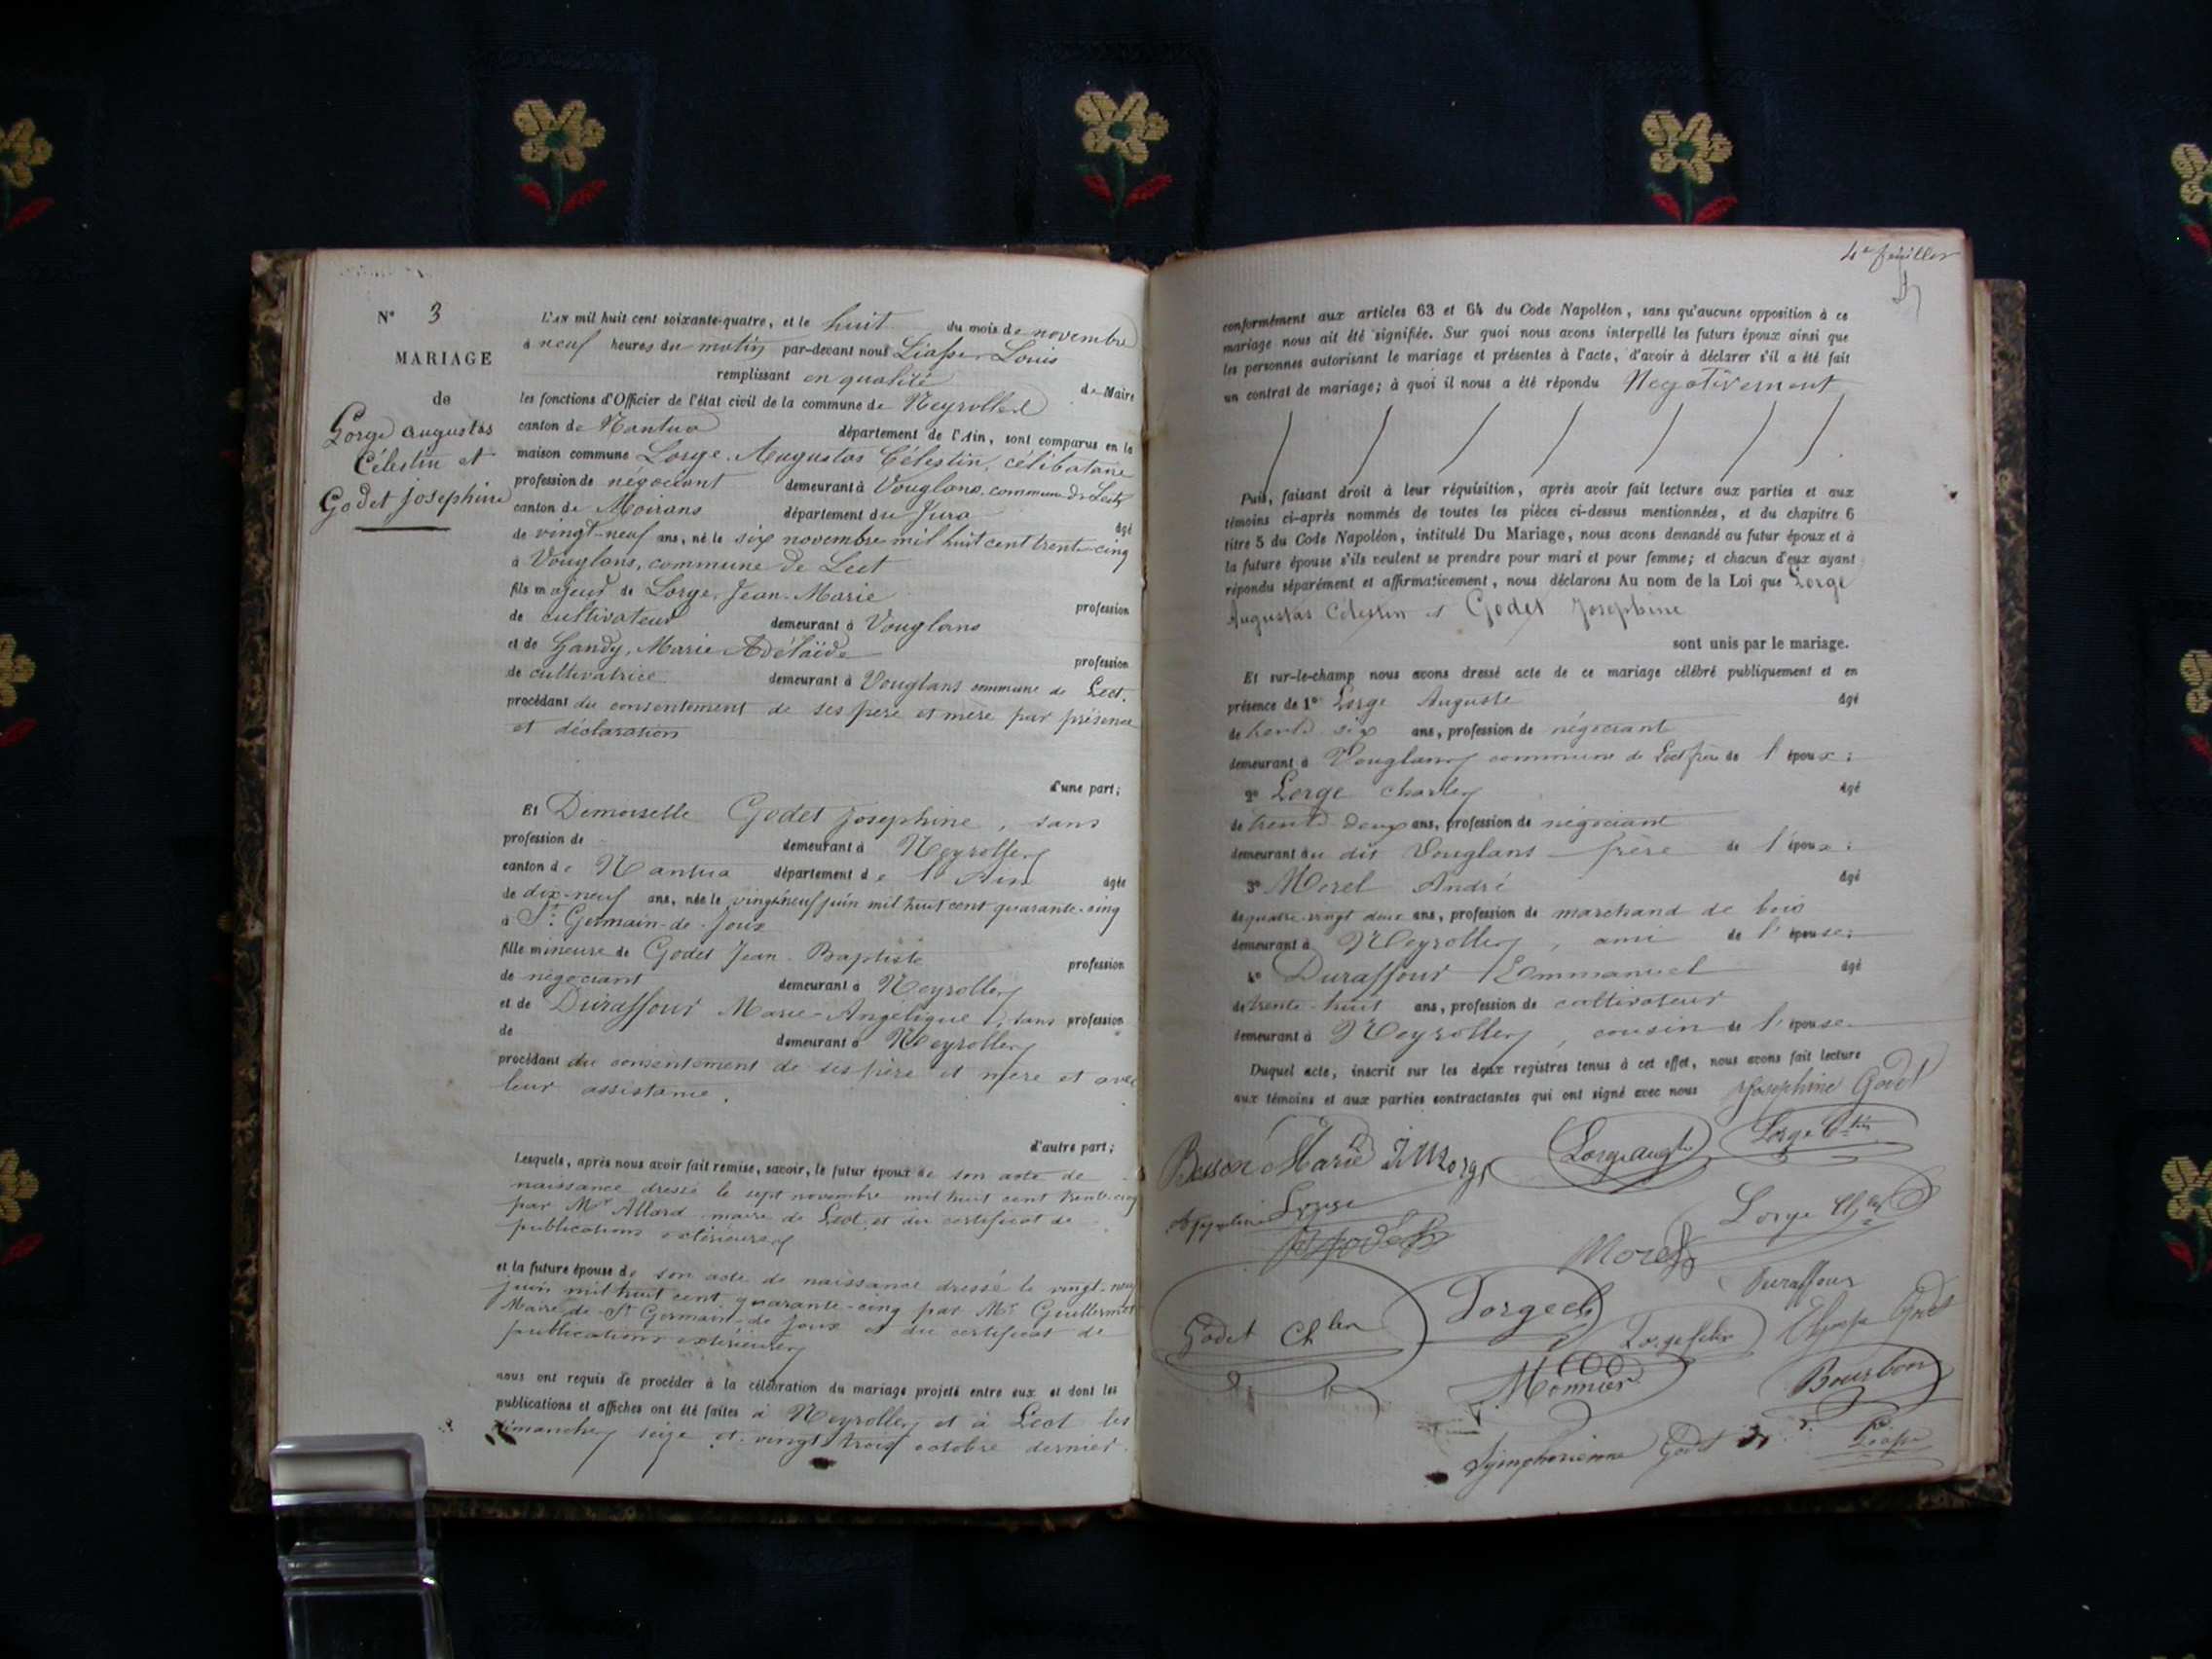 N° 3
MARIAGE
de
Lorge Augustas
Célestin et
Godet josephine
L'AN mil huit cent soixante-quatre, et le huit du mois de novembre
à neuf heures du matin par-devant nous Louis
remplissant en qualité de Maire
les fonctions d'Officier de l'état civil de la commune de Neyrolles
canton de Nantua département de l'Ain, sont comparus en la
maison commune Lorge, Augustas Célestin, célibataire
profession de négociant demeurant à Vouglans, commune de Lect
canton de Moirans département du Jura âgé
de vingt-neuf ans, né le six novembre mil huit cent trente-cinq
à Vouglans, commune de Lect
fils majeur de Lorge, Jean-Marie profession
de cultivateur demeurant à Vouglans
et de Gandy, Marie Adélaïde profession
de cultivatrice demeurant à Vouglans commune de Lect.
procédant du consentement de ses père et mère par présence
et déclaration
d'une part;
Et Demoiselle Godet Josephine, sans
profession de demeurant à Neyrolles
canton de Nantua département de l'Ain âgée
de dix-neuf ans, née le vingt-neuf juin mil huit cent quarante-cinq
à St. Germain-de-Joux
fille mineure de Godet Jean-Baptiste profession
de négociant demeurant à Neyrolles
et de Duraffour Marie-Angélique, sans profession
de demeurant à Neyrolles
procédant du consentement de ses père et mère et avec
leur assistance.
d'autre part;
Lesquels, après nous avoir fait remise, savoir, le futur époux de son acte de
naissance dressé le sept novembre mil huit cent trente-cinq
par Mr Allard maire de Lect et du certificat de
publications extérieures
et la future épouse de son acte de naissance dressé le vingt-neuf
juin mil huit cent quarante-cinq par Mr Guillermet
Maire de St Germain-de-Joux et du certificat de
publications extérieures
nous ont requis de procéder à la célébration du mariage projeté entre eux et dont les
publications et affiches ont été faites à Neyrolles et à Lect les
dimanches seize et vingt trois octobre dernier.
4e feuillet
conformément aux articles 63 et 64 du Code Napoléon, sans qu'aucune opposition à ce
mariage nous ait été signifiée. Sur quoi nous avons interpellé les futurs époux ainsi que
les personnes autorisant le mariage et présentes à l'acte, d'avoir à déclarer s'il a été fait
un contrat de mariage; à quoi il nous a été répondu Négativement
Puis, faisant droit à leur réquisition, après avoir fait lecture aux parties et aux
témoins ci-après nommés de toutes les pièces ci-dessus mentionnées, et du chapitre 6
titre 5 du Code Napoléon, intitulé Du Mariage, nous avons demandé au futur époux et à
la future épouse s'ils veulent se prendre pour mari et pour femme; et chacun d'eux ayant
répondu séparément et affirmativement, nous déclarons Au nom de la Loi que Lorge
Augustas Célestin et Godet Josephine
sont unis par le mariage.
Et sur-le-champ nous avons dressé acte de ce mariage célébré publiquement et en
présence de 1° Lorge Auguste âgé
de trente six ans, profession de négociant
demeurant à Vouglans commune de Lect frère de l'époux;
2° Lorge Charles âgé
de trente deux ans, profession de négociant
demeurant au dit Vouglans frère de l'époux;
3° Morel André âgé
de ans, profession de marchand de bois
demeurant à Neyrolles, ami de l'épouse;
4° Duraffour Emmanuel âgé
de trente-huit ans, profession de cultivateur
demeurant à Neyrolles, cousin de l'épouse.
Duquel acte, inscrit sur les deux registres tenus à cet effet, nous avons fait lecture
aux témoins et aux parties contractantes qui ont signé avec nous Josephine Godet
Marie Lorge Lorge Augte Lorge Ctin
Lorge
Lorge
Morel
Duraffour
Godet
Lorge
Lorge felix
Godet
Monnier
Bourbon
Symphorienne Godet